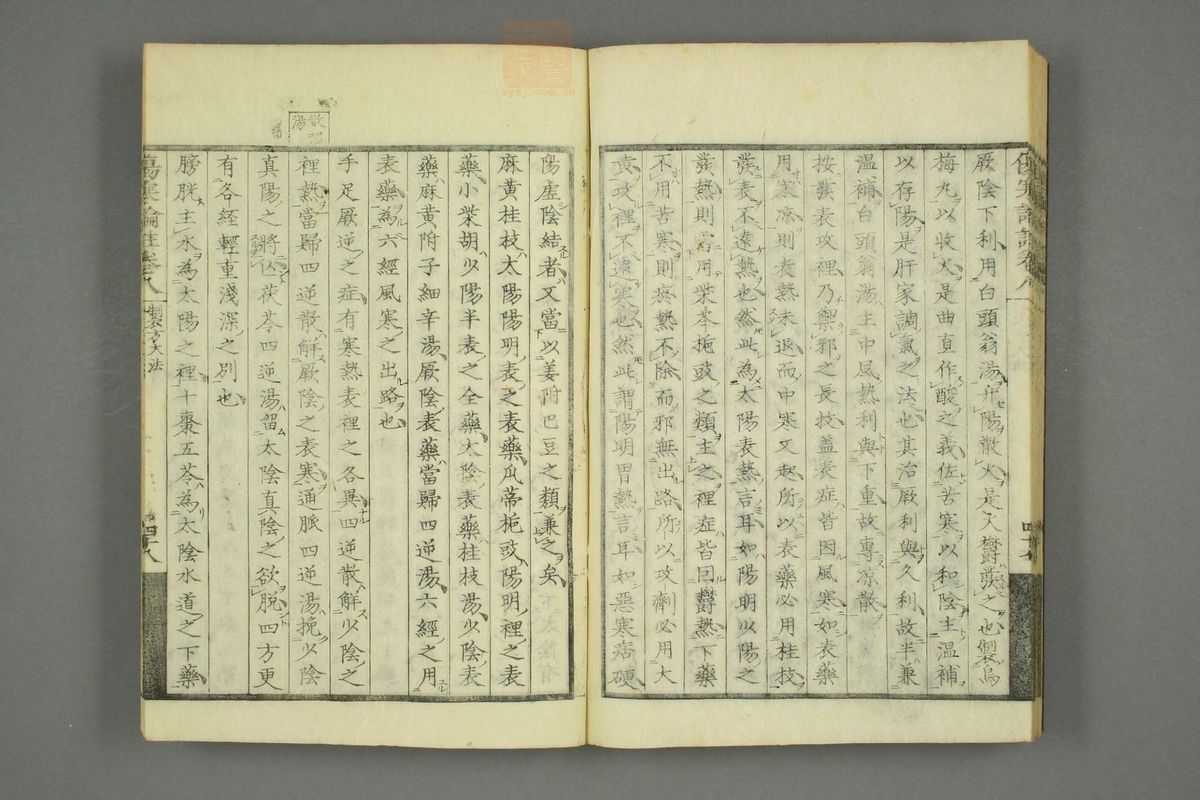 厥陰下利用白頭翁湯升陽散火是火欝發之也製烏
梅丸以收火是曲直作酸之義佐苦寒以和陰主溫補
以存陽是肝家調氣之法也其治厥利與久利故半兼
溫補白頭翁湯主中風熱利與下重故專凉散
按發表攻裡乃禦邪之長技盖表症皆因風寒如表藥
用寒凉則表熱未退而中寒又起所以表藥必用桂枝
發表不遠熱也然此為太陽表熱言耳如陽明少陽之
發熱則當用柴芩梔豉之類主之裡症皆因欝熱下藥
不用苦寒則瘀熱不除而邪無出路所以攻劑必用大
黃攻裡不遠寒也然此謂陽明胃熱言耳如惡寒痞硬
陽虛陰結者又當以姜附巴豆之類兼之矣
麻黃桂枝太陽陽明表之表藥瓜蒂梔豉陽明裡之表
藥小柴胡少陽半表之全藥太陰表藥桂枝湯少陰表
藥麻黃附子細辛湯厥陰表藥當歸四逆湯六經之用
表藥為六經風寒之出路也
手足厥逆之症有寒熱表裡之各異四逆散解少陰之
裡熱當歸四逆散解厥陰之表寒通脈四逆湯挽少陰
真陽之將亾茯苓四逆湯留太陰真陰之欲脫四方更
有各經輕重淺深之別也
膀胱主水為太陽之裡十棗五苓為太陰水道之下藥
傷寒論註卷八 製方大法 四十八